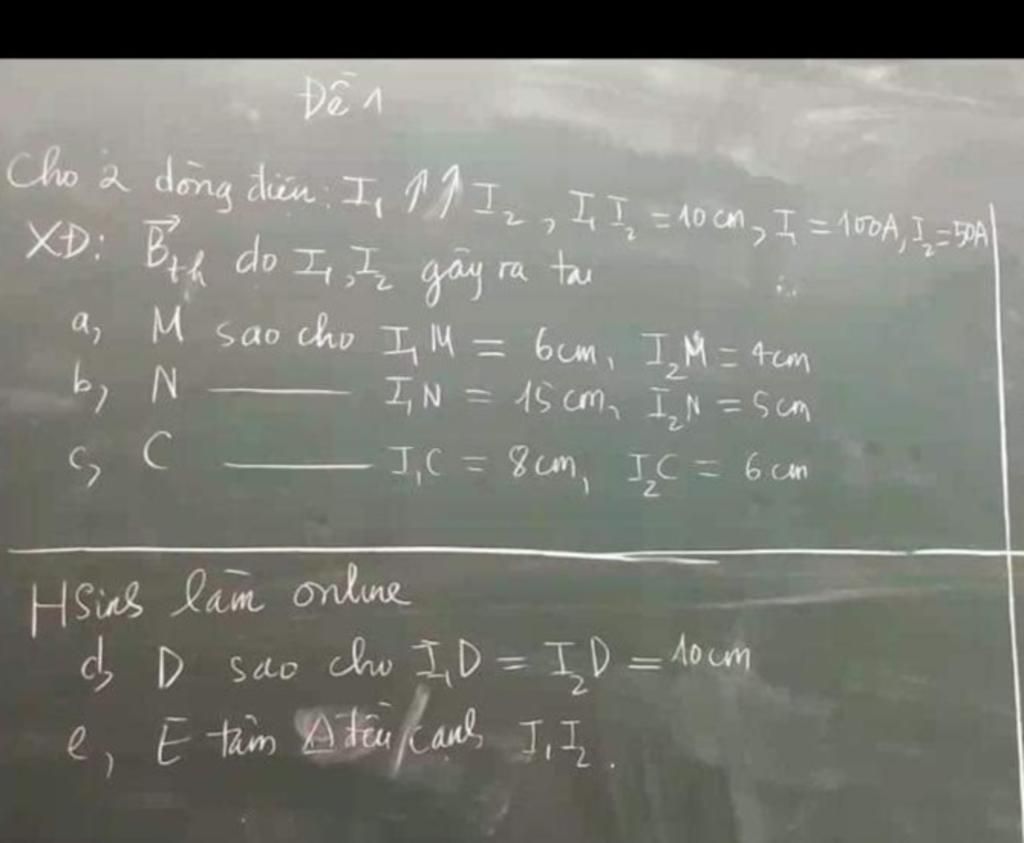 Đề 1
Cho 2 dòng điện: I₁ ↑↑ I₂, I₁I₂ = 10 cm, I₁ = 100A, I₂ = 50A
XĐ: B⃗th do I₁, I₂ gây ra tại
a, M sao cho I₁M = 6cm, I₂M = 4cm
b, N —— I₁N = 15 cm, I₂N = 5cm
c, C —— I₁C = 8cm, I₂C = 6cm
HSinh làm online
d, D sao cho I₁D = I₂D = 10cm
e, E tâm Δ đều / cạnh I₁I₂.